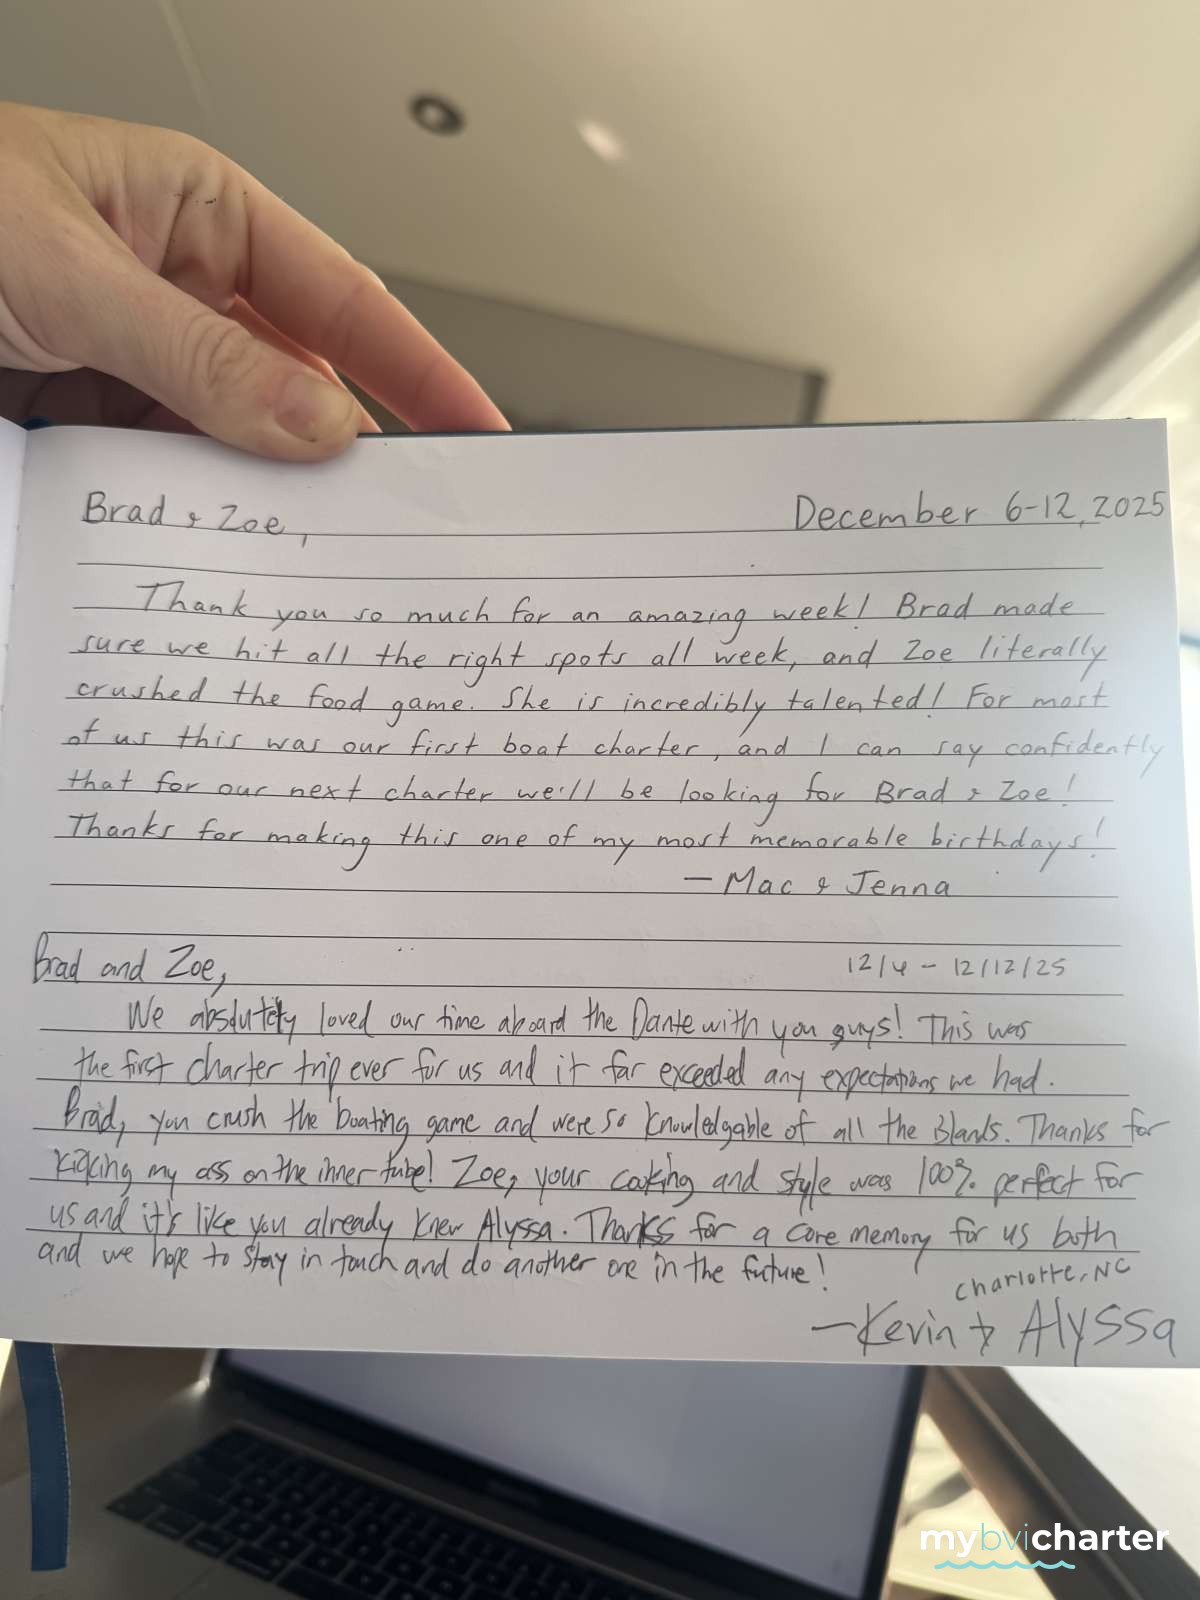 Brad & Zoe,
December 6-12, 2025
Thank you so much for an amazing week! Brad made
sure we hit all the right spots all week, and Zoe literally
crushed the food game. She is incredibly talented! For most
of us this was our first boat charter, and I can say confidently
that for our next charter we'll be looking for Brad & Zoe!
Thanks for making this one of my most memorable birthdays!
- Mac & Jenna
Brad and Zoe,
12/6 - 12/12/25
We absolutely loved our time aboard the Dante with you guys! This was
the first charter trip ever for us and it far exceeded any expectations we had.
Brad, you crush the boating game and were so knowledgable of all the islands. Thanks for
kicking my ass on the inner tube! Zoe, your cooking and style was 100% perfect for
us and it's like you already knew Alyssa. Thanks for a core memory for us both
and we hope to stay in touch and do another one in the future!
Charlotte, NC
- Kevin & Alyssa
mybvicharter